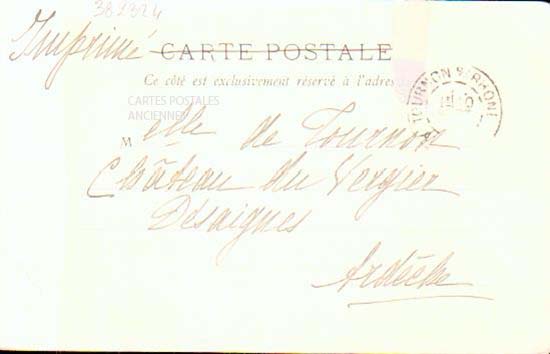 381324
Imprimé
CARTE POSTALE
Ce côté est exclusivement réservé à l'adresse
CARTES POSTALES
ANCIENNES
TOURNON S RHONE
Melle de Tournon
Château du Vergier
Désaignes
Ardèche